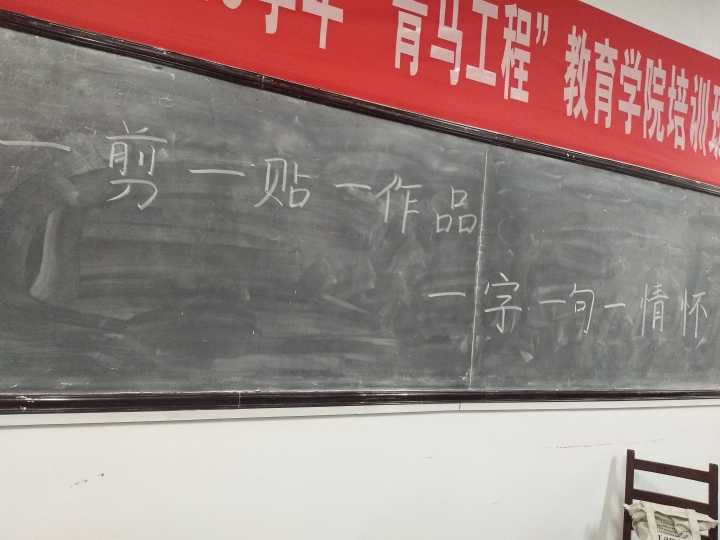 学年“青马工程”教育学院培训班
一剪一贴一作品
一字一句一情怀